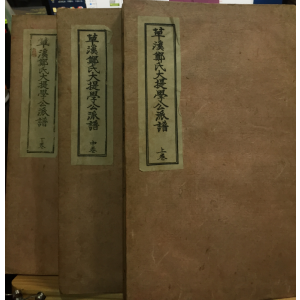 草溪鄭氏大提學公派譜
上卷
草溪鄭氏大提學公派譜
中卷
草溪鄭氏大提學公派譜
下卷